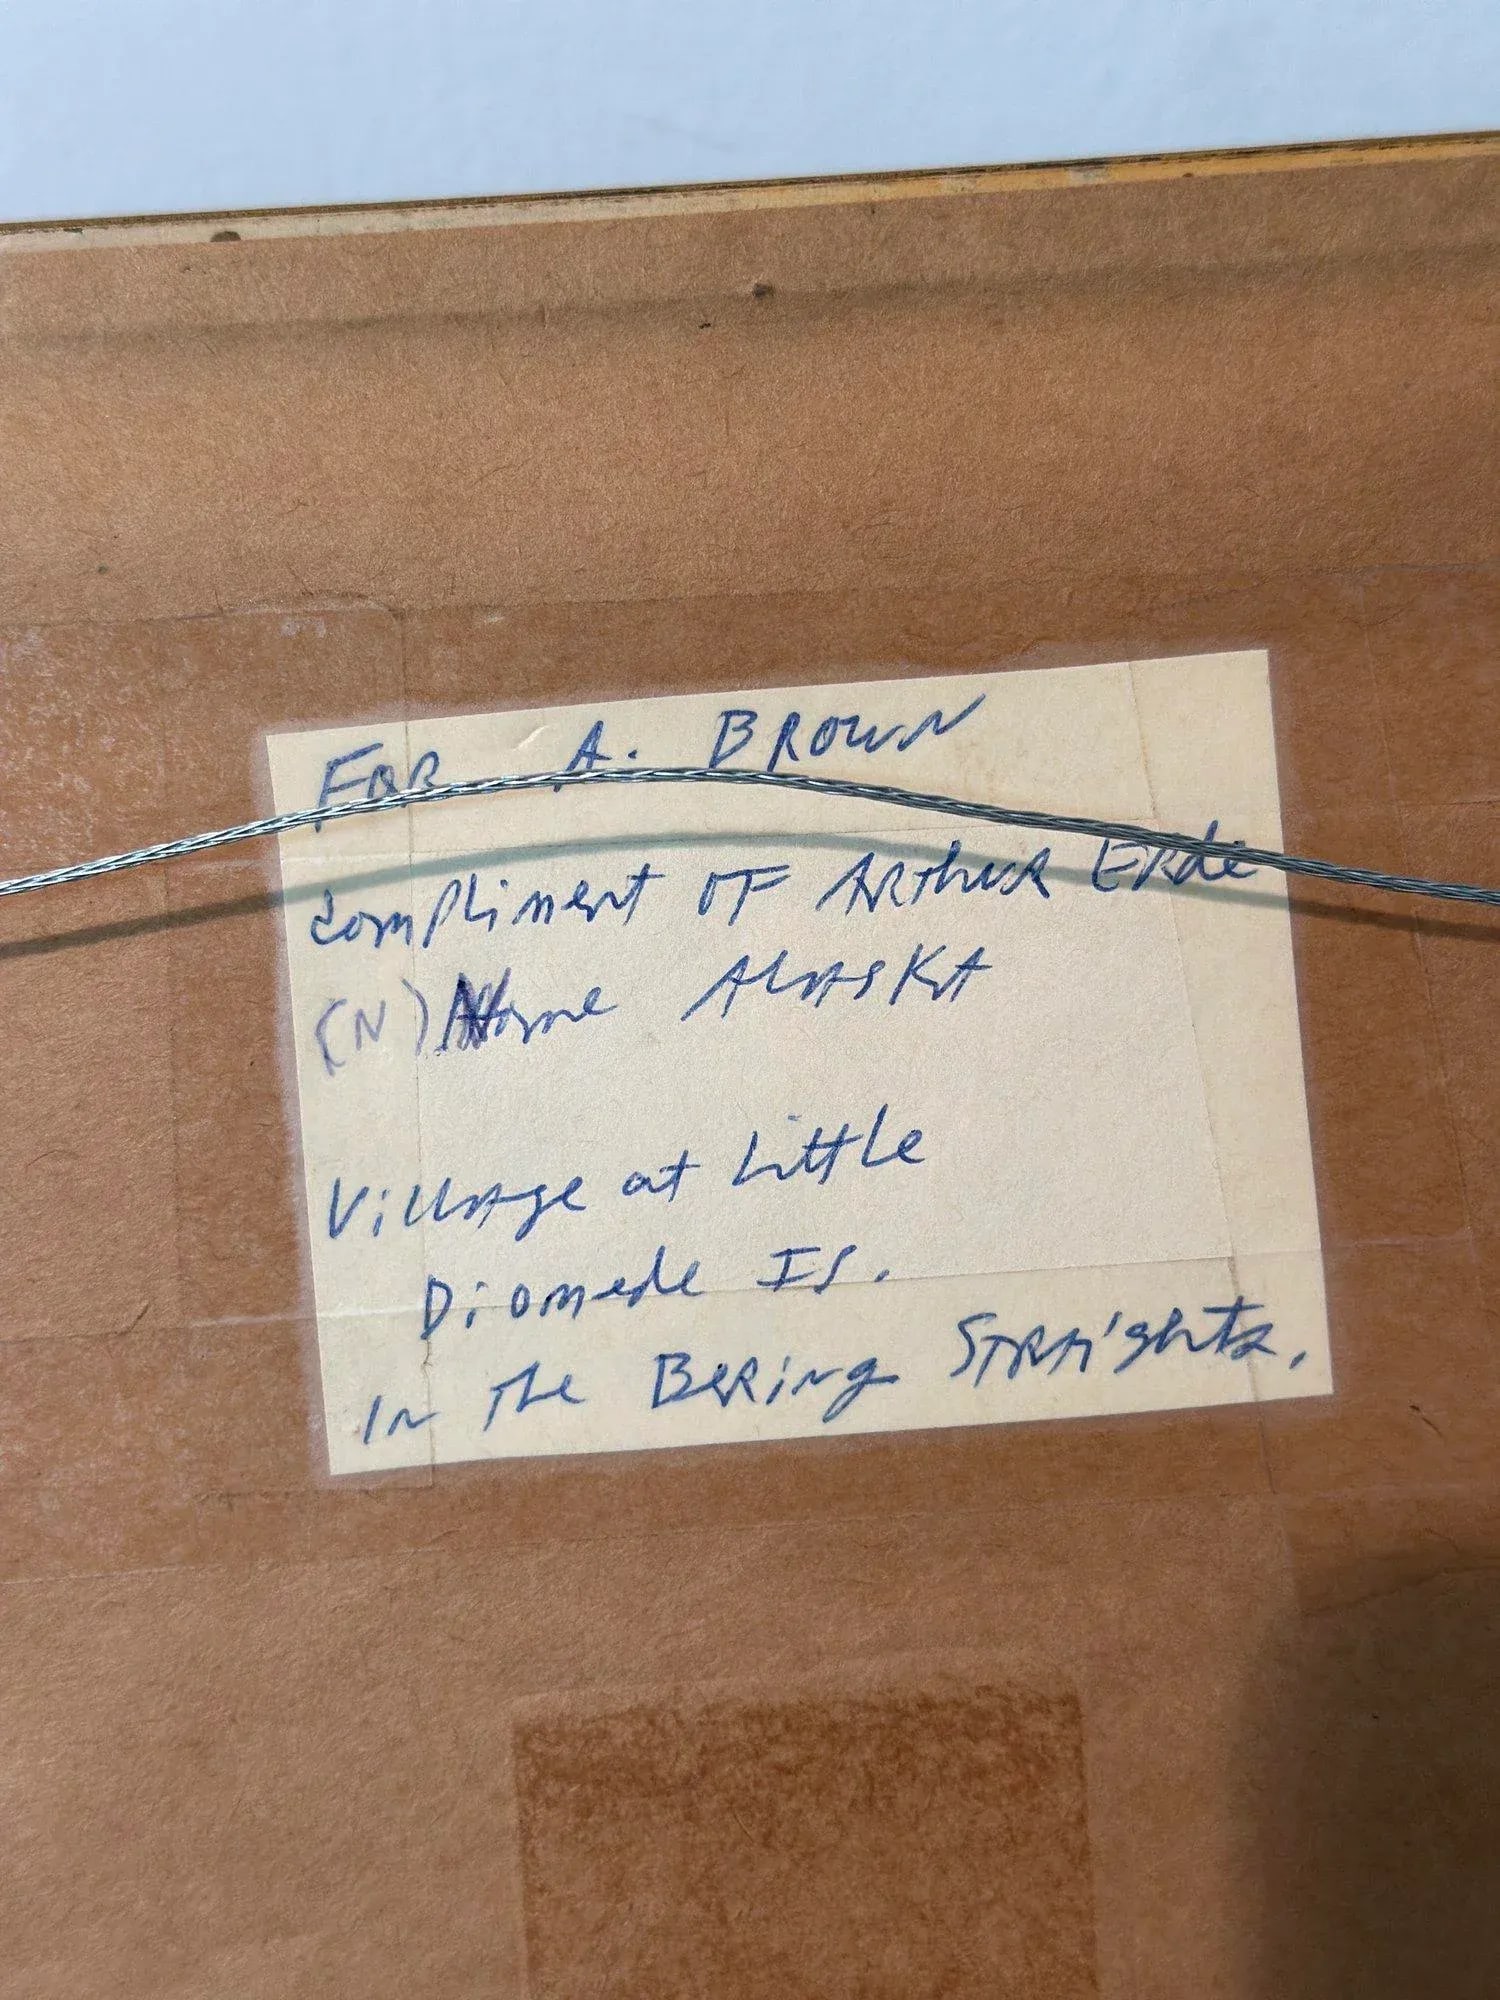 FOR A. BROWN
compliment OF ARthuR ERde
(N) Nome AlASKA
VillAge at Little
Diomede IS.
IN The BeRing STRAights.